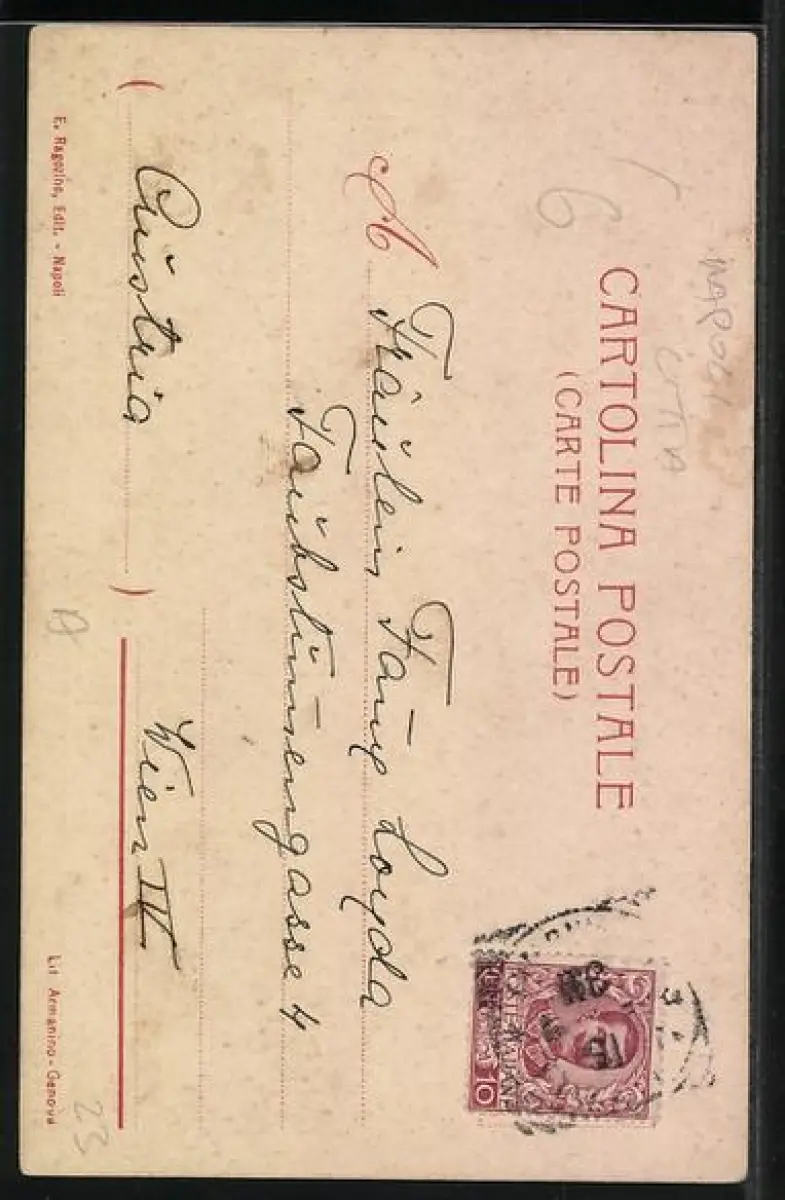 NAPOLI
CITTA
6
CARTOLINA POSTALE
(CARTE POSTALE)
POSTE ITALIANE
10
A Fräulein Fanÿ Loyda
Taubstum̄engasse 4
Wien IV
(Austria)
E. Ragozino, Edit. - Napoli
Lit. Armanino - Genova
23